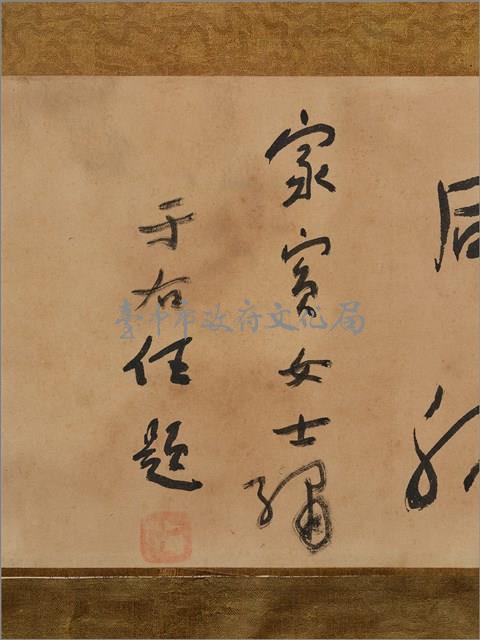 家賓女士繡
于右任題
臺中市政府文化局